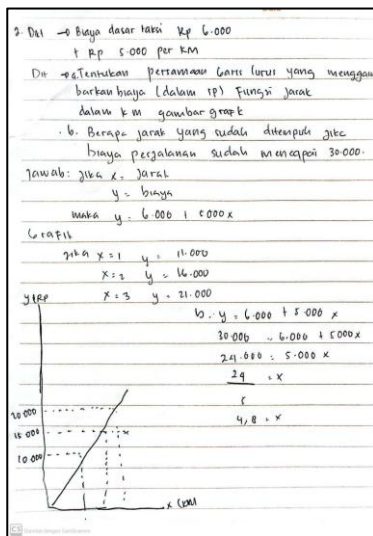 2. Dit → Biaya dasar taksi Rp 6.000
+ Rp 5.000 per KM
Dit → a. Tentukan persamaan Garis lurus yang menggam
barkan biaya (dalam rp) Fungsi Jarak
dalam km gambar grafik
b. Berapa jarak yang sudah ditempuh jika
biaya perjalanan sudah mencapai 30.000.
Jawab: jika x = Jarak
y = biaya
maka y = 6.000 + 5000x
Grafik
jika x = 1 y = 11.000
x = 2 y = 16.000
x = 3 y = 21.000
b. y = 6.000 + 5.000 x
30.000 = 6.000 + 5000x
24.000 = 5.000 x
24 = x
5
4,8 = x
y (RP
20.000
15.000
10.000
x (KM)
CS